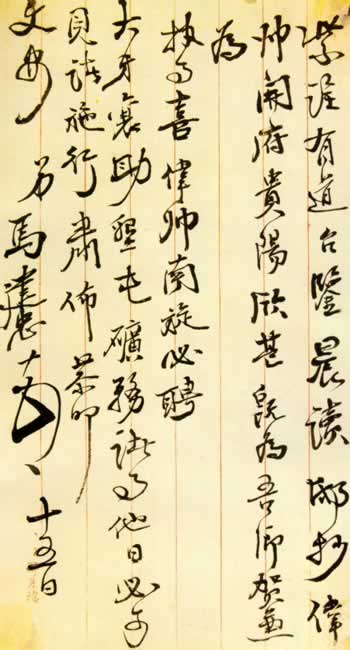 有道台鑒晨读邸抄偉
帅開府貴陽欣甚既為吾鄉賀並
為
执事喜偉帅南旋必聘
大才襄助墾屯礦務諸事他日必可
見諸施行肅佈恭叩
文安 弟馬建忠 十五日